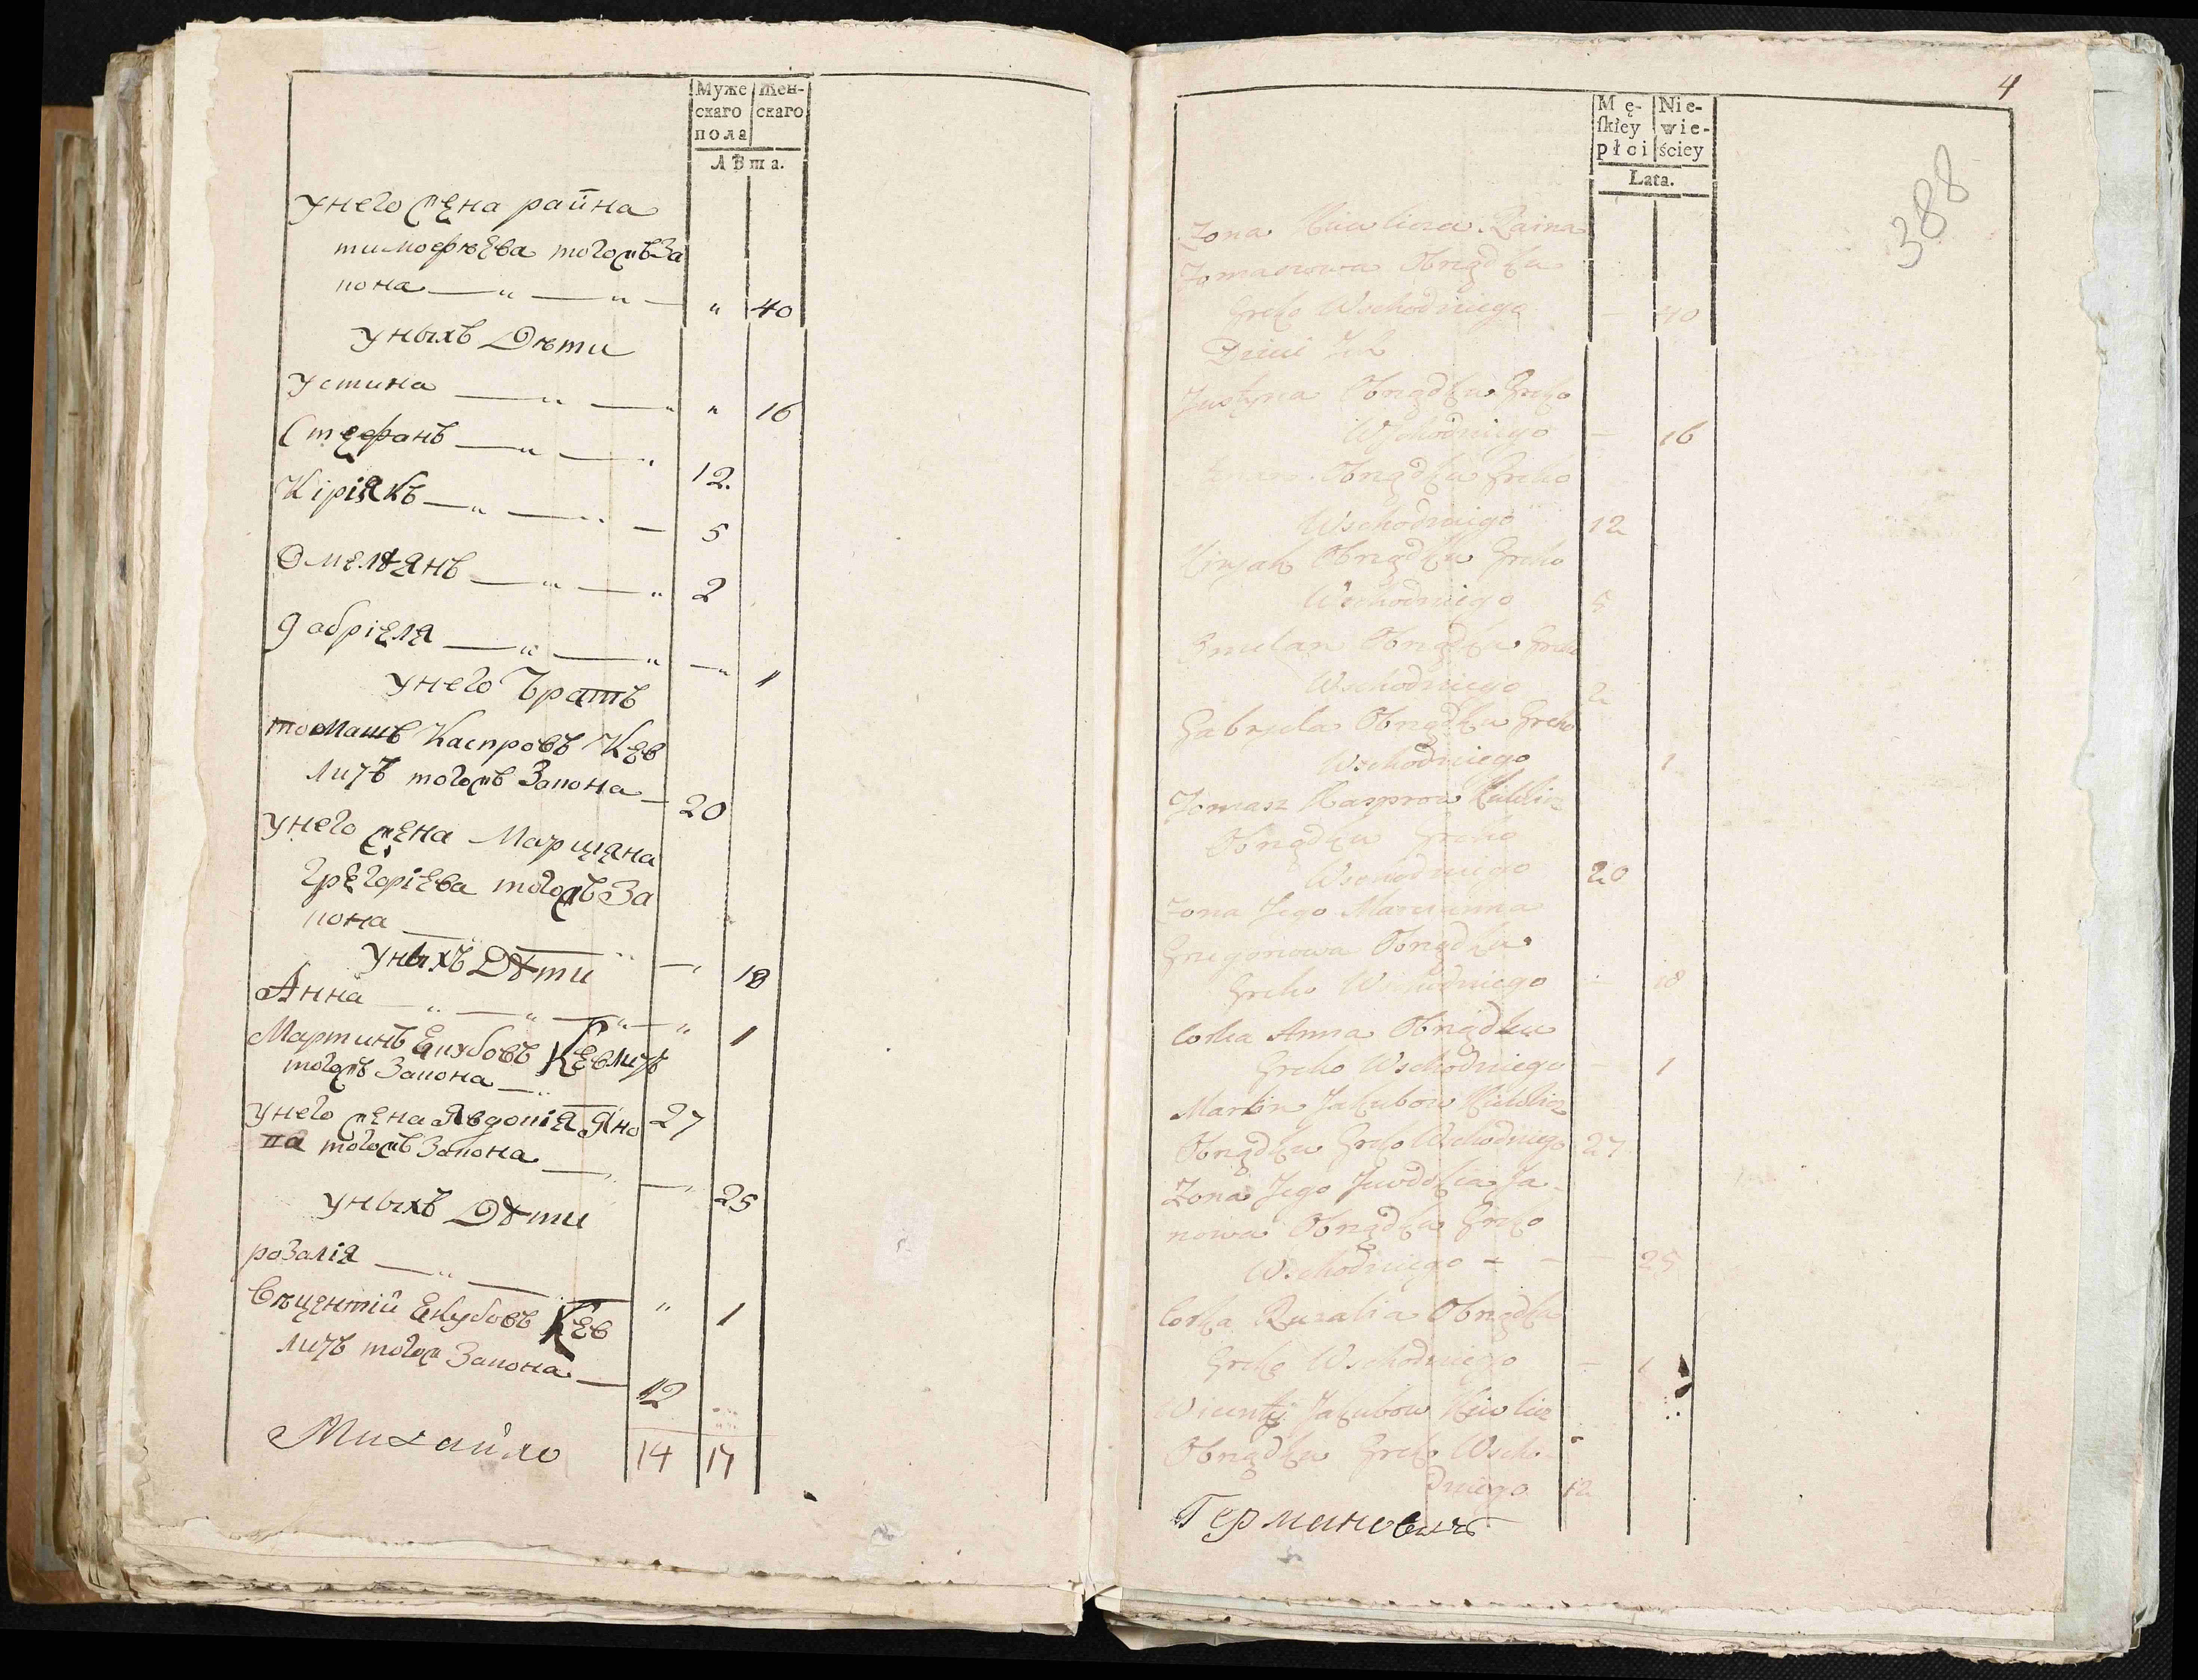 Муже
скаго
пола
Жен-
скаго
Лѣта.
унего жена раина
тимофѣева тогожъ За
кона — " — " — " 40
уныхъ Дѣти
Устина — " — " " 16
Стефанъ — " — " 12.
Кіріякъ — " — " — 5
Омелѣянъ — " — " 2
Габріеля — " — " — " 1
унего Братъ
томашъ Каспровъ Кев
личъ тогожъ Закона — 20
унего жена Марцяна
Грегоріева тогожъ За
кона — " — " — 18
уныхъ Дѣти
Анна — " — " — " — " 1
Мартинъ Екубовъ Кевличъ
тогожъ Закона — " — 27
унего жена Явдокія Яно
ва тогожъ Закона — — 25
уныхъ Дѣти
розалія — " — " 1
Вѣцентій Екубовъ Кев
личъ тогож Закона — 12
14 17
Михайло
4
388
Mę-
skiey
płci
Nie-
wie-
ściey
Lata.
Zona Kiewlicza Raina
Tomaszowa Obrządku
Greko Wschodniego — 40
Dzieci Ich
Justyna Obrządku Greko
Wschodniego — 16
Obrządku Greko
Wschodniego 12
Kiryak Obrządku Greko
Wschodniego 5
Emelan Obrządku Greko
Wschodniego 2
Gabryela Obrządku Greko
Wschodniego 1
Tomasz Kasprow Kiewlicz
Obrządku Greko
Wschodniego 20
Zona Jego Maryanna
Gregorowa Obrządku
Greko Wschodniego — 18
Corka Anna Obrządku
Greko Wschodniego — 1
Martin Jakubow Kiewlicz
Obrządku Greko Wschodniego 27
Zona Jego Juwdokia Ja-
nowa Obrządku Greko
Wschodniego — — — 25
Corka Ruzalia Obrządku
Greko Wschodniego — 1
Wicenty Jakubow Kiewlicz
Obrządku Greko Wscho-
dniego 12
Германовичъ